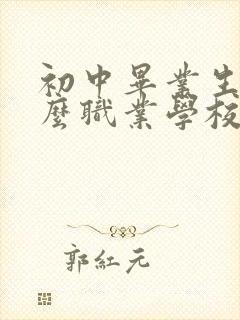 初中畢業生
麼職業學校
郭紅元